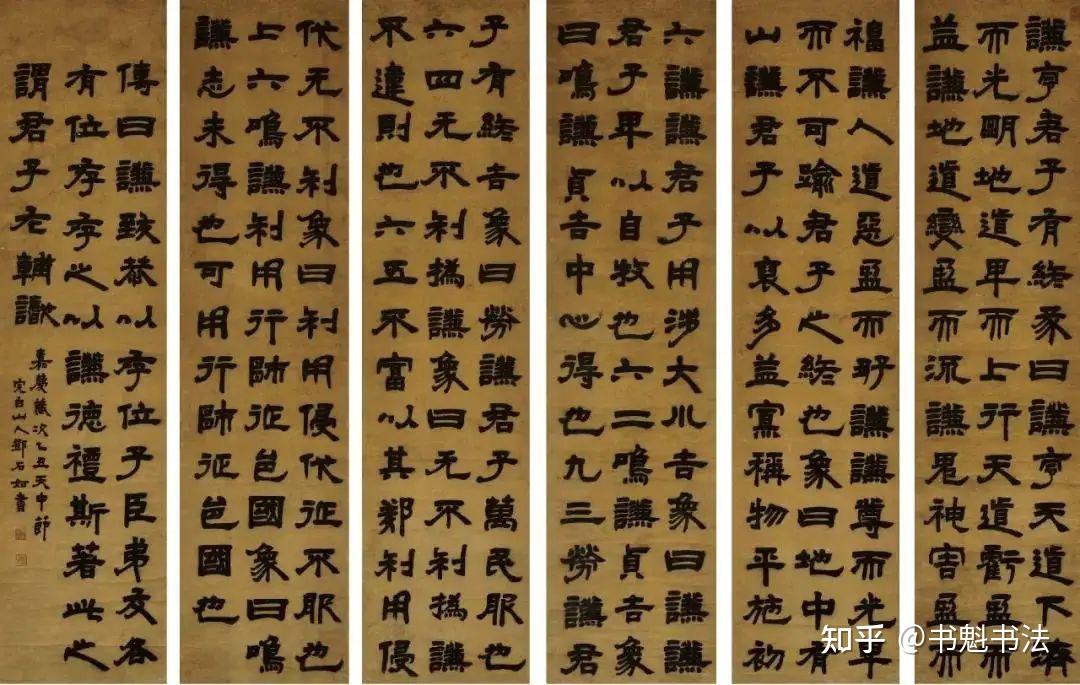 謙亨君子有終彖曰謙亨天道下濟
而光明地道卑而上行天道虧盈而
益謙地道變盈而流謙鬼神害盈而
福謙人道惡盈而好謙謙尊而光卑
而不可踰君子之終也象曰地中有
山謙君子以裒多益寡稱物平施初
六謙謙君子用涉大川吉象曰謙謙
君子卑以自牧也六二鳴謙貞吉象
曰鳴謙貞吉中心得也九三勞謙君
子有終吉象曰勞謙君子萬民服也
六四无不利撝謙象曰无不利撝謙
不違則也六五不富以其鄰利用侵
伐无不利象曰利用侵伐征不服也
上六鳴謙利用行師征邑國象曰鳴
謙志未得也可用行師征邑國也
傳曰謙致恭以存位子臣弟友各
有位存存之以謙德禮斯著此之
謂君子輔
嘉慶歲次乙丑天中節
完白山人鄧石如書
知乎 @书魁书法